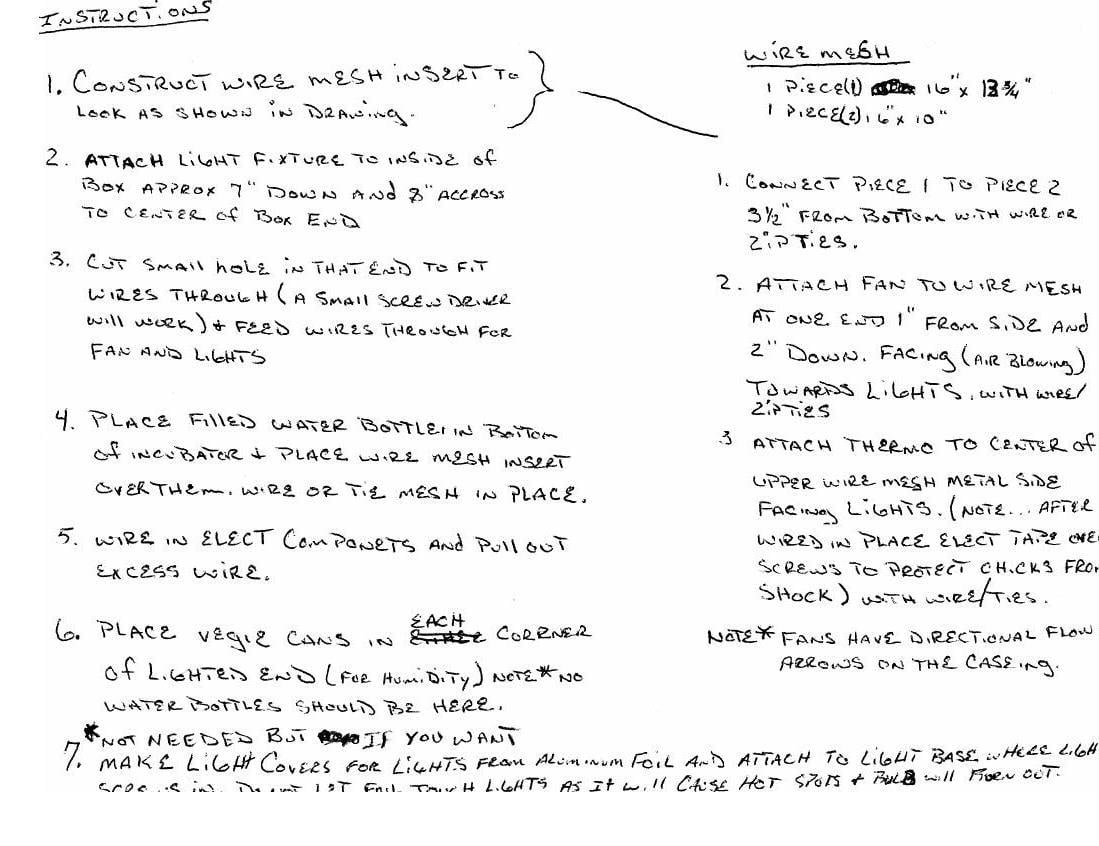 INSTRUCTIONS
1. CONSTRUCT WIRE MESH INSERT TO
LOOK AS SHOWN IN DRAWING.
2. ATTACH LIGHT FIXTURE TO INSIDE OF
BOX APPROX 7" DOWN AND 8" ACCROSS
TO CENTER OF BOX END
3. CUT SMALL HOLE IN THAT END TO FIT
WIRES THROUGH (A SMALL SCREWDRIVER
WILL WORK) + FEED WIRES THROUGH FOR
FAN AND LIGHTS
4. PLACE FILLED WATER BOTTLES IN BOTTOM
OF INCUBATOR + PLACE WIRE MESH INSERT
OVER THEM. WIRE OR TIE MESH IN PLACE.
5. WIRE IN ELECT COMPONETS AND PULL OUT
EXCESS WIRE.
6. PLACE VEGIE CANS IN EACH CORRNER
OF LIGHTED END (FOR HUMIDITY) NOTE* NO
WATER BOTTLES SHOULD BE HERE.
*NOT NEEDED BUT IF YOU WANT
7. MAKE LIGHT COVERS FOR LIGHTS FROM ALUMINUM FOIL AND ATTACH TO LIGHT BASE WHERE LIGH
LIGHTS AS IT WILL CAUSE HOT SPOTS + BULB WILL BURN OUT.
WIRE MESH
1 PIECE(1) 16" x 13 3/4"
1 PIECE(2) 16" x 10"
1. CONNECT PIECE 1 TO PIECE 2
3 1/2" FROM BOTTOM WITH WIRE OR
ZIPTIES.
2. ATTACH FAN TO WIRE MESH
AT ONE END 1" FROM SIDE AND
2" DOWN. FACING (AIR BLOWING)
TOWARDS LIGHTS. WITH WIRE/
ZIPTIES
3 ATTACH THERMO TO CENTER OF
UPPER WIRE MESH METAL SIDE
FACING LIGHTS. (NOTE... AFTER
WIRED IN PLACE ELECT TAPE OVE
SCREWS TO PROTECT CHICKS FROM
SHOCK) WITH WIRE/TIES.
NOTE* FANS HAVE DIRECTIONAL FLOW
ARROWS ON THE CASEING.